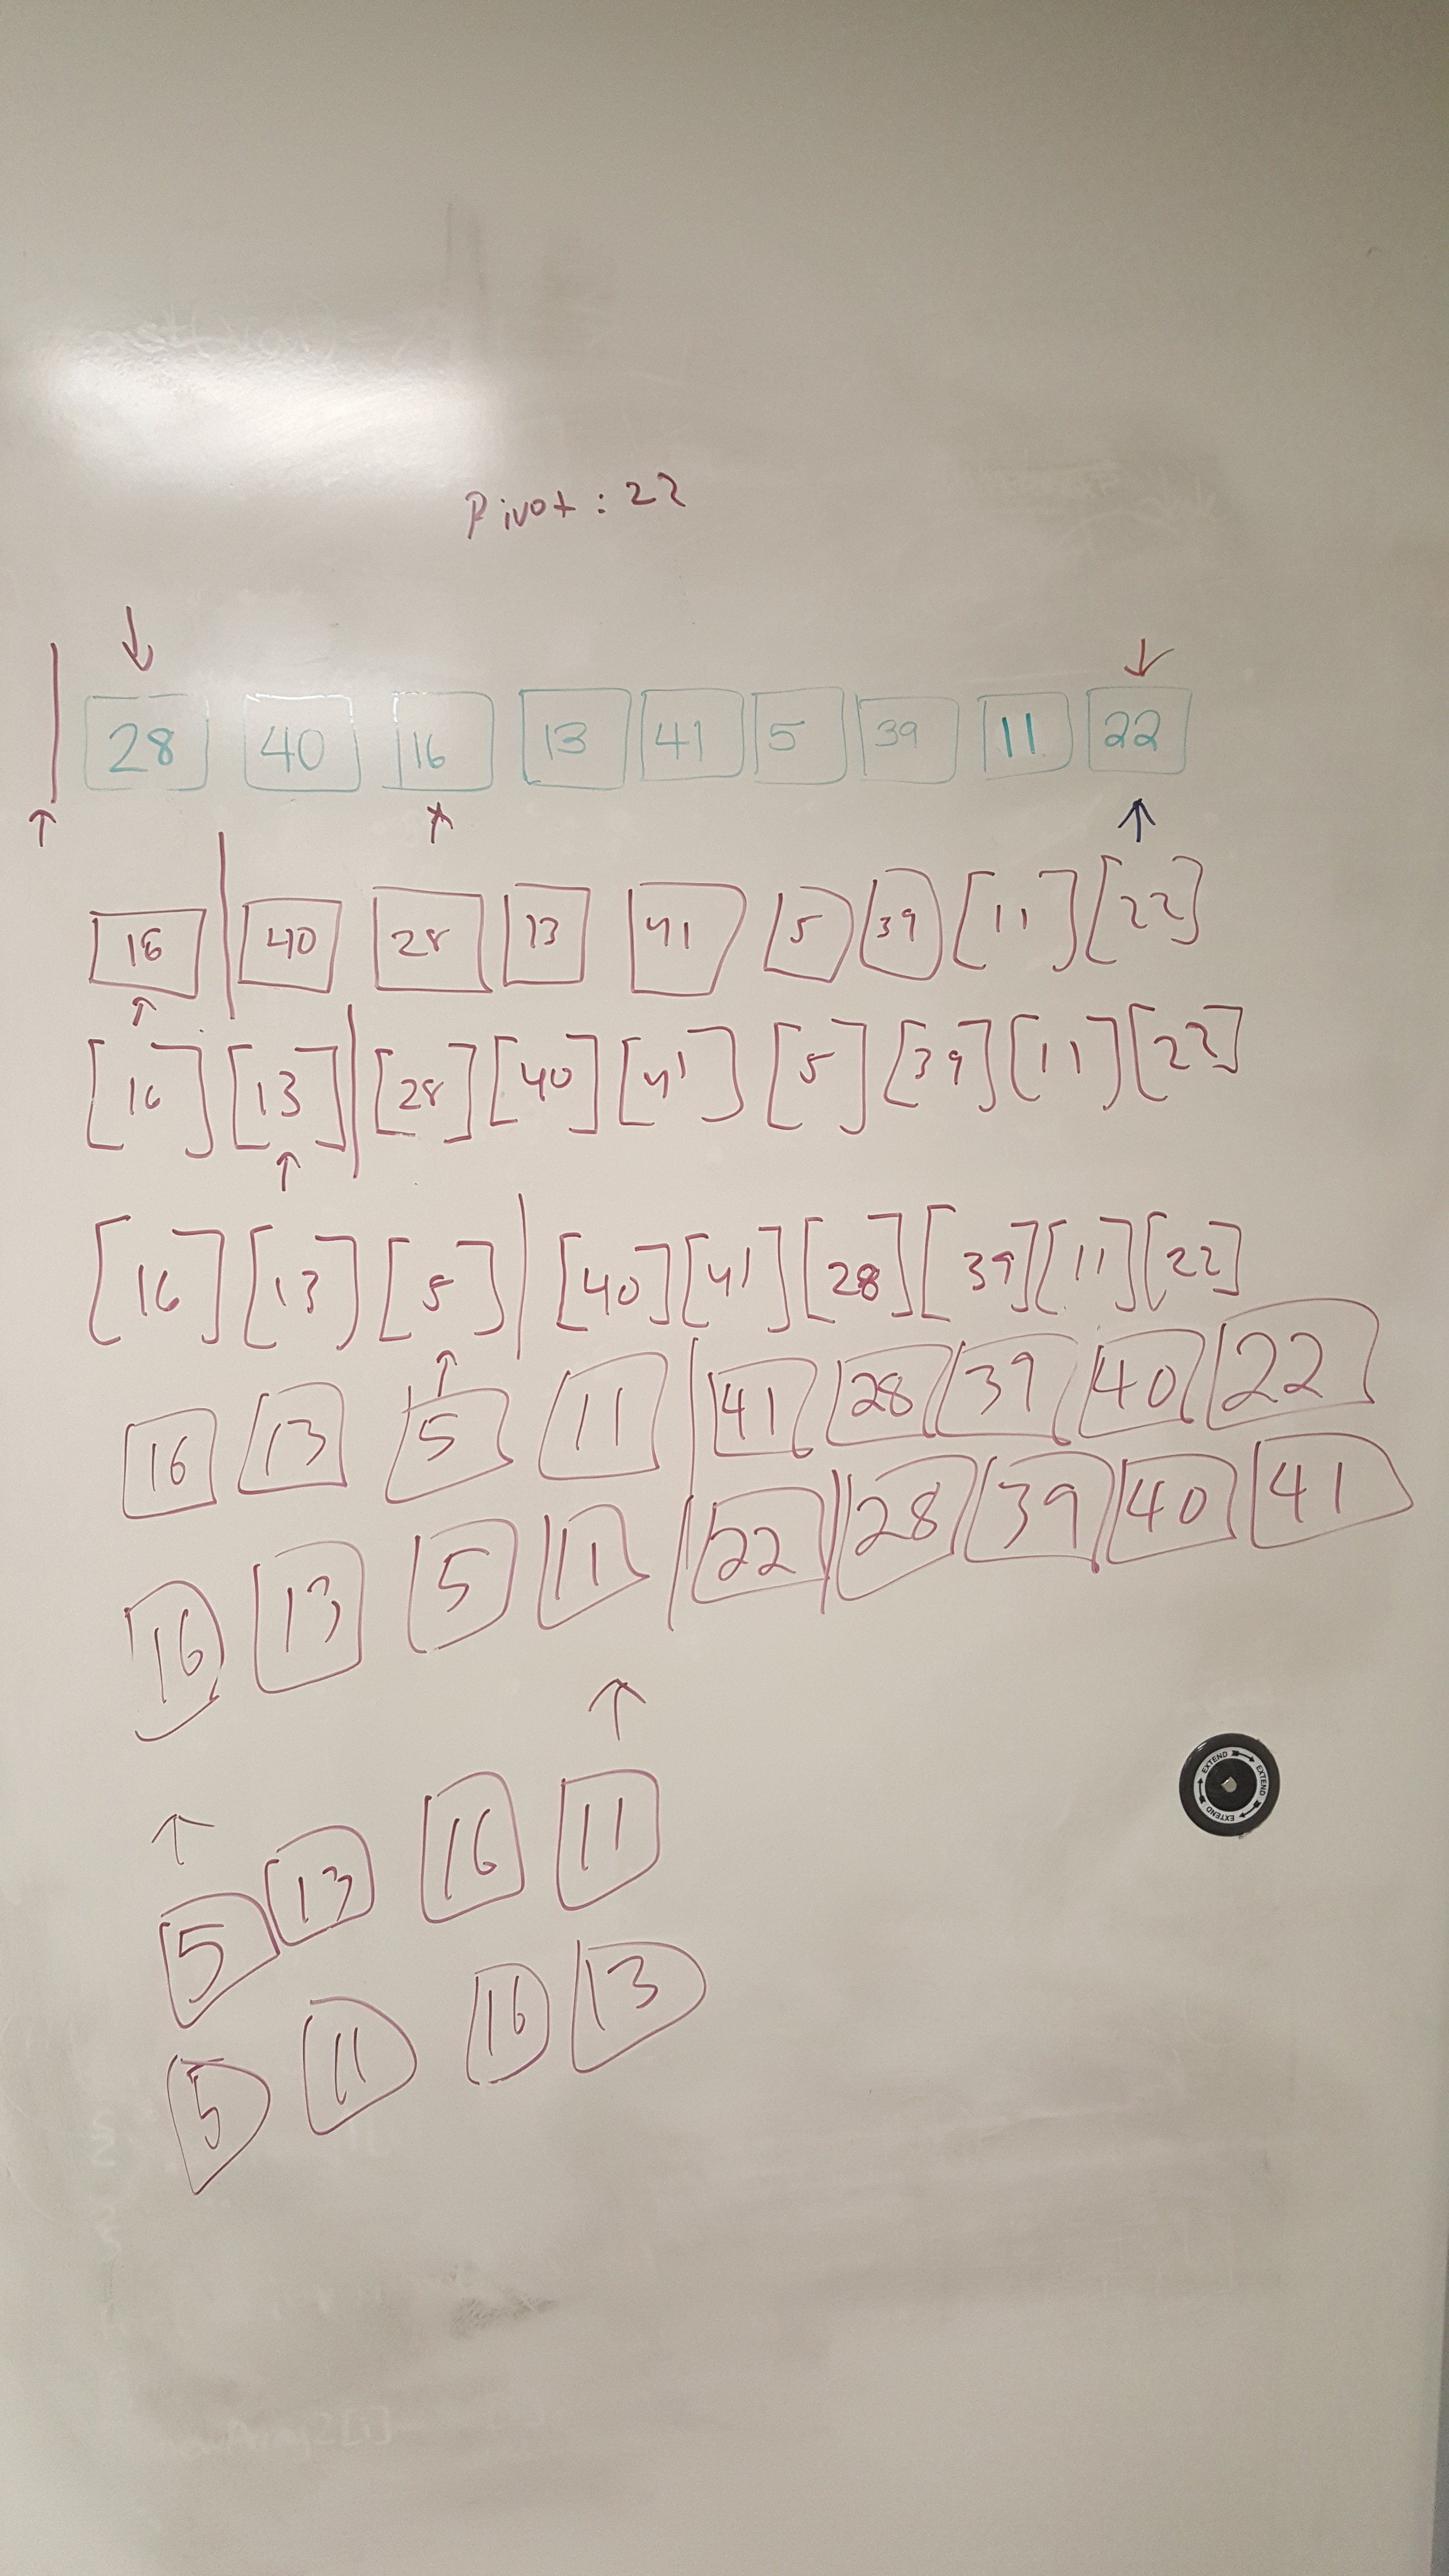 Pivot: 22
28 40 16 13 41 5 39 11 22
16 40 28 13 41 5 39 [11] [22]
[16] [13] [28] [40] [41] [5] [39] [11] [22]
[16] [13] [5] [40] [41] [28] [39] [11] [22]
16 13 5 11 41 28 39 40 22
16 13 5 11 22 28 39 40 41
5 13 16 11
5 11 16 13
EXTEND EXTEND EXTEND
newArray2[i]